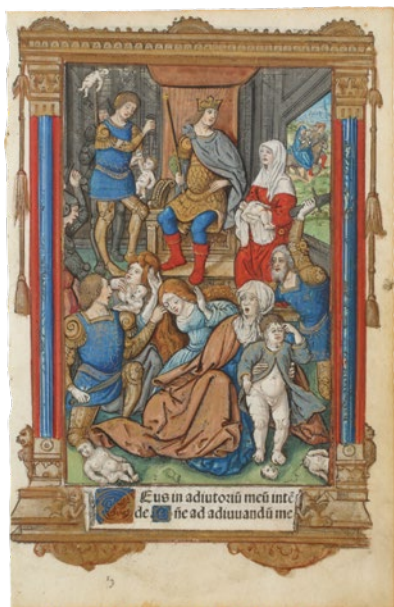 Eus in adiutoriū meū intē
de. Dn̄e ad adiuuandū me
13